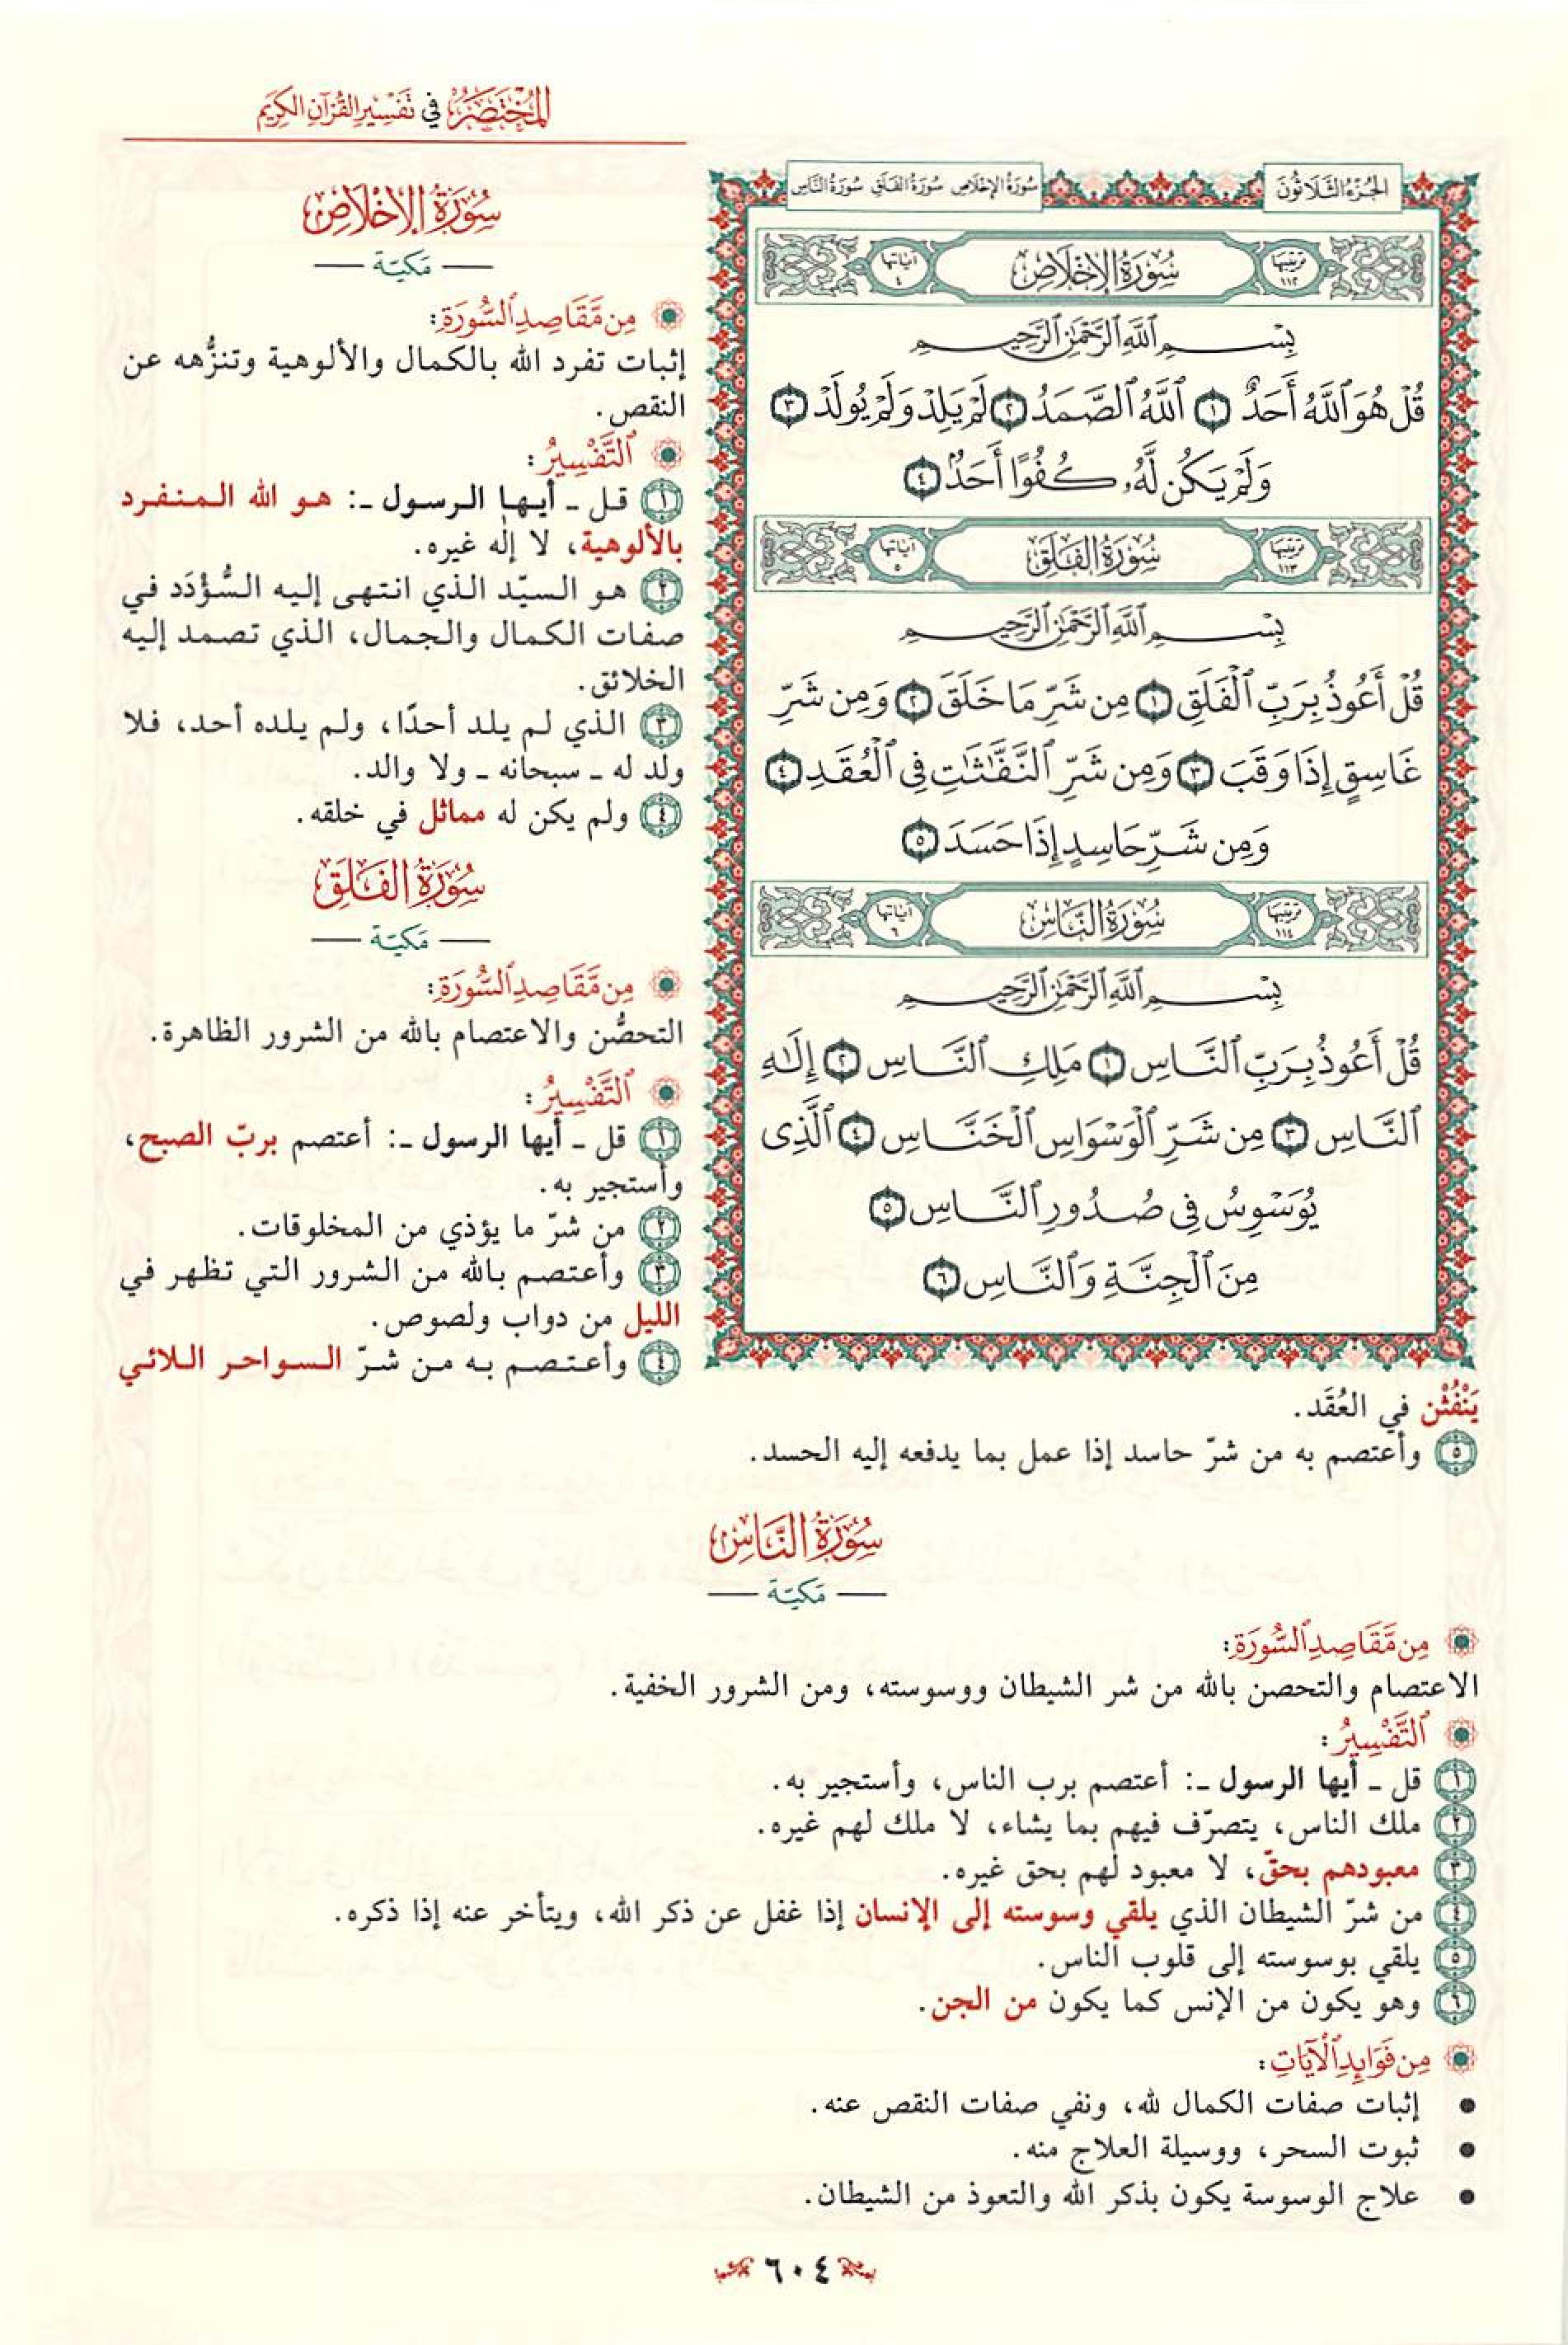 المُخْتَصَرُ فِي تَفْسِيرِ القُرْآنِ الكَرِيمِ
الجُزْءُ الثَّلَاثُونَ
سُورَةُ الإِخْلَاصِ سُورَةُ الفَلَقِ سُورَةُ النَّاسِ
ترتيبها ١١٢
سُورَةُ الإِخْلَاصِ
آياتها ٤
بِسْمِ ٱللَّهِ ٱلرَّحْمَٰنِ ٱلرَّحِيمِ
قُلْ هُوَ ٱللَّهُ أَحَدٌ ١ ٱللَّهُ ٱلصَّمَدُ ٢ لَمْ يَلِدْ وَلَمْ يُولَدْ ٣
وَلَمْ يَكُن لَّهُۥ كُفُوًا أَحَدٌۢ ٤
ترتيبها ١١٣
سُورَةُ الفَلَقِ
آياتها ٥
بِسْمِ ٱللَّهِ ٱلرَّحْمَٰنِ ٱلرَّحِيمِ
قُلْ أَعُوذُ بِرَبِّ ٱلْفَلَقِ ١ مِن شَرِّ مَا خَلَقَ ٢ وَمِن شَرِّ
غَاسِقٍ إِذَا وَقَبَ ٣ وَمِن شَرِّ ٱلنَّفَّٰثَٰتِ فِى ٱلْعُقَدِ ٤
وَمِن شَرِّ حَاسِدٍ إِذَا حَسَدَ ٥
ترتيبها ١١٤
سُورَةُ النَّاسِ
آياتها ٦
بِسْمِ ٱللَّهِ ٱلرَّحْمَٰنِ ٱلرَّحِيمِ
قُلْ أَعُوذُ بِرَبِّ ٱلنَّاسِ ١ مَلِكِ ٱلنَّاسِ ٢ إِلَٰهِ
ٱلنَّاسِ ٣ مِن شَرِّ ٱلْوَسْوَاسِ ٱلْخَنَّاسِ ٤ ٱلَّذِى
يُوَسْوِسُ فِى صُدُورِ ٱلنَّاسِ ٥
مِنَ ٱلْجِنَّةِ وَٱلنَّاسِ ٦
سُورَةُ الإِخْلَاصِ
مَكيّة
مِن مَّقَاصِدِ ٱلسُّورَةِ:
إثبات تفرد الله بالكمال والألوهية وتنزُّهه عن
النقص.
ٱلتَّفْسِيرُ:
١ قل ـ أيها الرسول ـ: هو الله المنفرد
بالألوهية، لا إلٰه غيره.
٢ هو السيّد الذي انتهى إليه السُّؤْدَد في
صفات الكمال والجمال، الذي تصمد إليه
الخلائق.
٣ الذي لم يلد أحدًا، ولم يلده أحد، فلا
ولد له ـ سبحانه ـ ولا والد.
٤ ولم يكن له مماثل في خلقه.
سُورَةُ الفَلَقِ
مَكيّة
مِن مَّقَاصِدِ ٱلسُّورَةِ:
التحصُّن والاعتصام بالله من الشرور الظاهرة.
ٱلتَّفْسِيرُ:
١ قل ـ أيها الرسول ـ: أعتصم بربّ الصبح،
وأستجير به.
٢ من شرّ ما يؤذي من المخلوقات.
٣ وأعتصم بالله من الشرور التي تظهر في
الليل من دواب ولصوص.
٤ وأعتصم به من شرّ السواحر اللائي
يَنْفُثْن في العُقَد.
٥ وأعتصم به من شرّ حاسد إذا عمل بما يدفعه إليه الحسد.
سُورَةُ النَّاسِ
مَكيّة
مِن مَّقَاصِدِ ٱلسُّورَةِ:
الاعتصام والتحصن بالله من شر الشيطان ووسوسته، ومن الشرور الخفية.
ٱلتَّفْسِيرُ:
١ قل ـ أيها الرسول ـ: أعتصم برب الناس، وأستجير به.
٢ ملك الناس، يتصرّف فيهم بما يشاء، لا ملك لهم غيره.
٣ معبودهم بحقّ، لا معبود لهم بحق غيره.
٤ من شرّ الشيطان الذي يلقي وسوسته إلى الإنسان إذا غفل عن ذكر الله، ويتأخر عنه إذا ذكره.
٥ يلقي بوسوسته إلى قلوب الناس.
٦ وهو يكون من الإنس كما يكون من الجن.
مِن فَوَائِدِ ٱلْآيَاتِ:
• إثبات صفات الكمال لله، ونفي صفات النقص عنه.
• ثبوت السحر، ووسيلة العلاج منه.
• علاج الوسوسة يكون بذكر الله والتعوذ من الشيطان.
٦٠٤